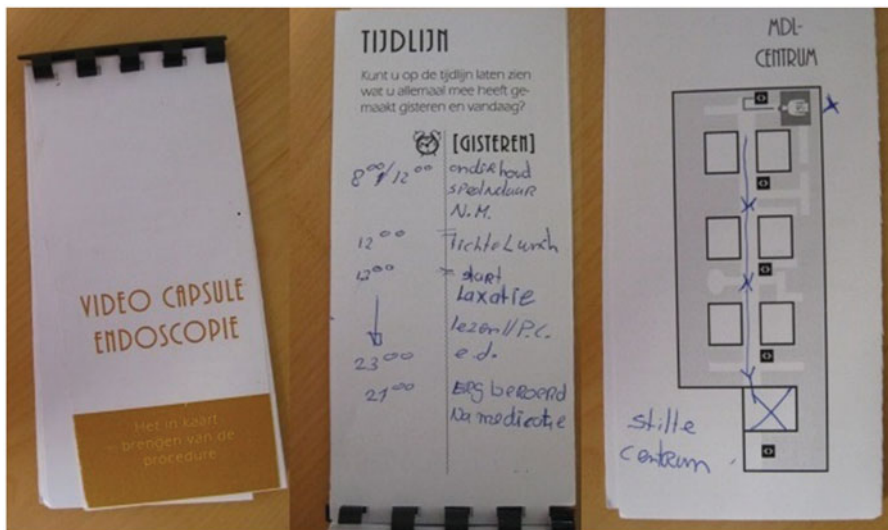 VIDEO CAPSULE
ENDOSCOPIE
Het in kaart
brengen van de
procedure
TIJDLIJN
Kunt u op de tijdlijn laten zien
wat u allemaal mee heeft ge-
maakt gisteren en vandaag?
[GISTEREN]
8⁰⁰/12⁰⁰ onderhoud
N.M.
12⁰⁰ = lichte Lunch
13⁰⁰ = start
Laxatie
lezen // P.C.
23⁰⁰ e.d.
21⁰⁰ Erg beroerd
Na medicatie
MDL-
CENTRUM
stille
centrum